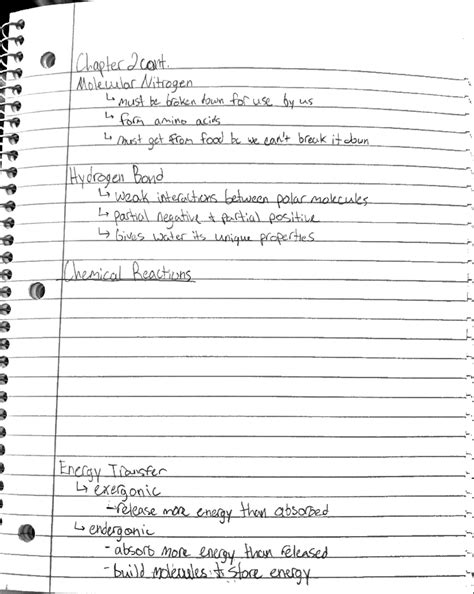 Chapter 2 cont.
Molecular Nitrogen
↳ must be broken down for use by us
↳ form amino acids
↳ must get from food bc we can't break it down
Hydrogen Bond
↳ weak interactions between polar molecules
↳ partial negative + partial positive
↳ Gives water its unique properties
Chemical Reactions
Energy Transfer
↳ exergonic
- release more energy than absorbed
↳ endergonic
- absorb more energy than released
- build molecules + store energy